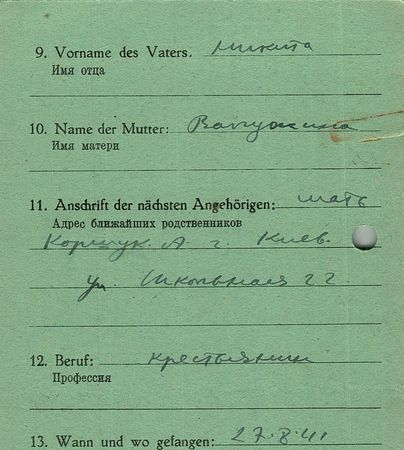 9. Vorname des Vaters. Микита
Имя отца
10. Name der Mutter:
Имя матери
11. Anschrift der nächsten Angehörigen: мать
Адрес ближайших родственников
Коршук А. г. Киев.
ул Школьная 22.
12. Beruf: крестьянин
Профессия
13. Wann und wo gefangen: 27.8.41